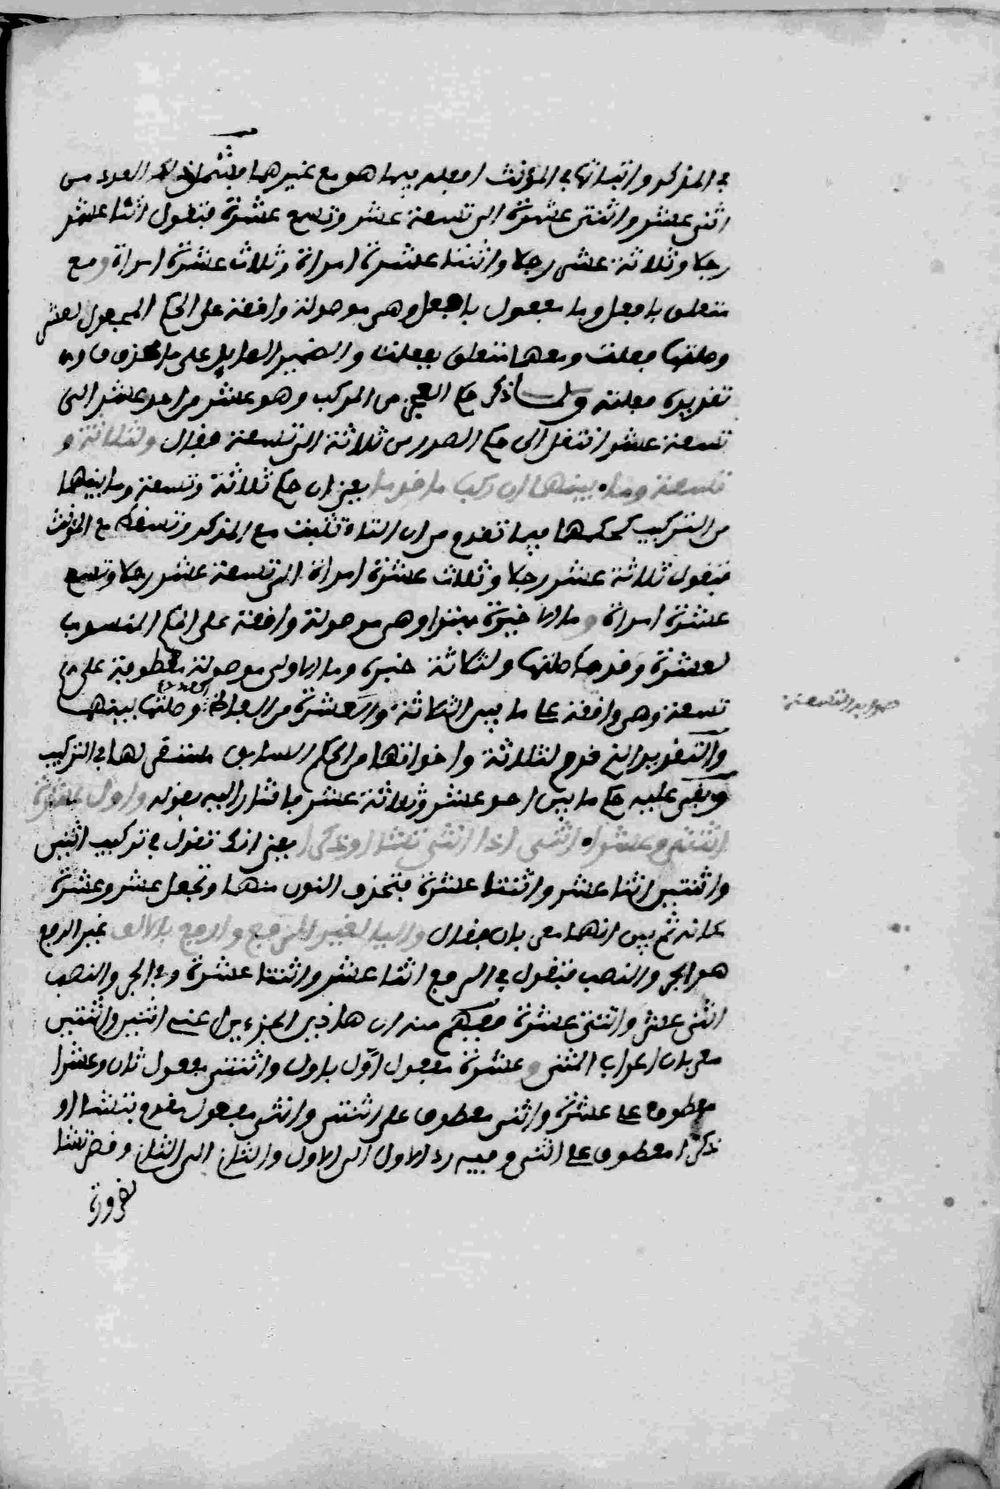 في المذكر واثباتها في المؤنث افعله فيها هو مع غيرهما فيشمل ذلك العدد من
اثنى عشر واثنتى عشرة الى تسعة عشر وتسع عشرة فتقول اثنا عشر
رجلا وثلاثة عشر رجلا واثنتا عشرة امراة وثلاث عشرة امراة ومع
متعلق بافعل وما مفعول بافعل وهي موصولة واقعة على الحكم المجعول لعشر
وصلتها فعلت ومعهما متعلق بفعلت والضمير العايد على ما محذوف
تقديره فعلته ولما ذكر حكم العجز من المركب وهو عشر من احد عشر الى
تسعة عشر انتقل الى حكم الصدر من ثلاثة الى تسعة فقال ولثلاثة و
تسعة وما بينهما ان ركبا ما قدما يعني ان حكم ثلاثة وتسعة وما بينهما
من التركيب كحكمها فيما تقدم من ان التاء تثبت مع المذكر وتسقط مع المؤنث
فتقول ثلاثة عشر رجلا وثلاث عشرة امراة الى تسعة عشر رجلا وتسع
عشرة امراة وما الاخيرة مبتدا وهي موصولة واقعة على الحكم المنسوب
لعشرة وقدما صلتها ولثلاثة خبره وما الاولى موصولة معطوفة على
تسعة وهي واقعة على ما بين الثلاثة والعشرة من العدد وصلتها بينهما
والتقدير الذي قدم لثلاثة واخواتها من الحكم السابق مستقر لها في التركيب
وبقي عليه حكم ما بين احد عشر وثلاثة عشر فاشار اليه بقوله واول عشرة
اثنتي وعشرا اثني اذا انثى تشا او ذكرا يعني انك تقول في تركيب اثنين
واثنتين اثنا عشر واثنتا عشرة فتحذف النون منهما وتجعل عشر وعشرة
مكانه ثم بين انهما معربان فقال واليا لغير الرفع وارفع بالالف غير الرفع
هو الجر والنصب فتقول في الرفع اثنا عشر واثنتا عشرة وفي الجر والنصب
اثنى عشر واثنتى عشرة فيفهم منه ان هاذين الجزءين اعني اثنين واثنتين
معربان اعراب المثنى وعشرة مفعول اول باول واثنتي مفعول ثان وعشرا
معطوف على عشرة واثنى معطوف على اثنتى وانثى مفعول مقدم بتشا او
ذكرا معطوف على انثى وفيه رد الاول الى الاول والثاني الى الثاني وقصر تشا
ضرورة